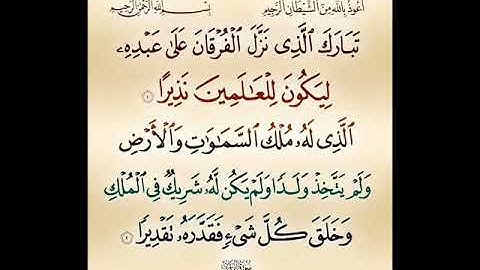 أعوذ بالله من الشيطان الرجيم بسم الله الرحمن الرحيم
تَبَارَكَ ٱلَّذِى نَزَّلَ ٱلْفُرْقَانَ عَلَىٰ عَبْدِهِۦ
لِيَكُونَ لِلْعَـٰلَمِينَ نَذِيرًا ١
ٱلَّذِى لَهُۥ مُلْكُ ٱلسَّمَـٰوَٰتِ وَٱلْأَرْضِ
وَلَمْ يَتَّخِذْ وَلَدًا وَلَمْ يَكُن لَّهُۥ شَرِيكٌ فِى ٱلْمُلْكِ
وَخَلَقَ كُلَّ شَىْءٍ فَقَدَّرَهُۥ تَقْدِيرًا ٢